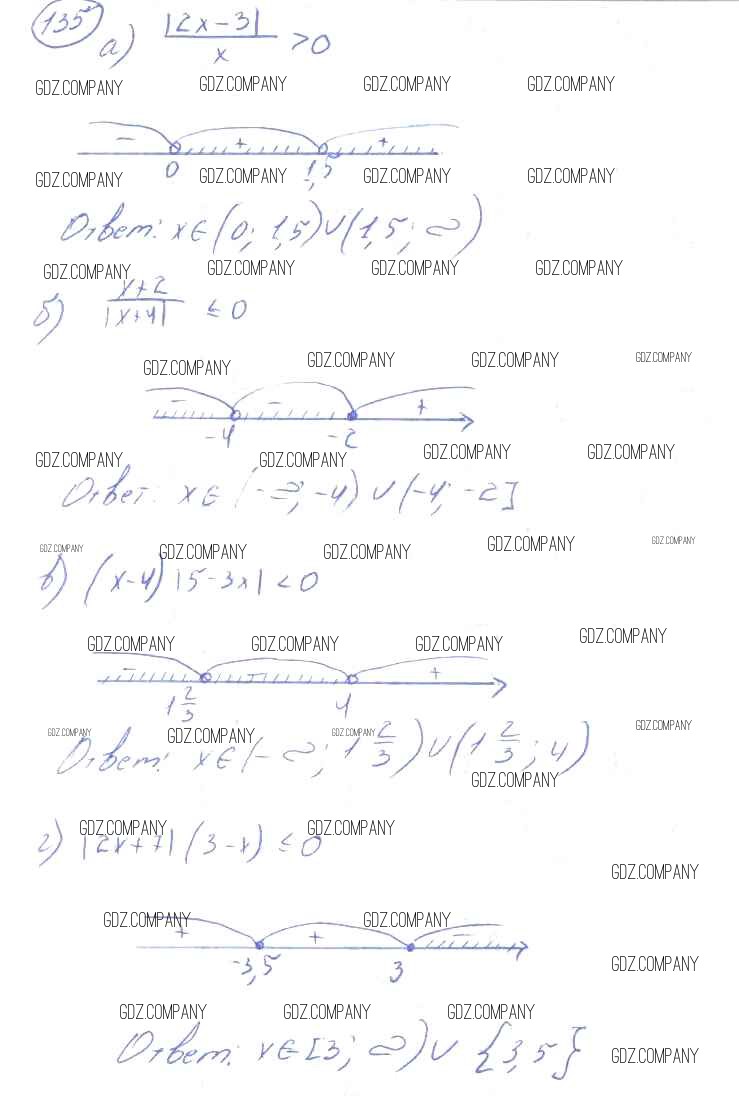 135
а) |2x-3|/x >0
GDZ.COMPANY GDZ.COMPANY GDZ.COMPANY GDZ.COMPANY
- + +
0 1,5
GDZ.COMPANY GDZ.COMPANY GDZ.COMPANY GDZ.COMPANY
Ответ: x∈(0; 1,5)∪(1,5; ∞)
GDZ.COMPANY GDZ.COMPANY GDZ.COMPANY GDZ.COMPANY
б) x+2/|x+4| ≤ 0
GDZ.COMPANY GDZ.COMPANY GDZ.COMPANY GDZ.COMPANY
- - +
-4 -2
GDZ.COMPANY GDZ.COMPANY GDZ.COMPANY GDZ.COMPANY
Ответ: x∈(-∞; -4)∪(-4; -2]
GDZ.COMPANY GDZ.COMPANY GDZ.COMPANY GDZ.COMPANY GDZ.COMPANY
в) (x-4)|5-3x|<0
GDZ.COMPANY GDZ.COMPANY GDZ.COMPANY GDZ.COMPANY
- - +
1 2/3 4
GDZ.COMPANY GDZ.COMPANY GDZ.COMPANY GDZ.COMPANY
Ответ: x∈(-∞; 1 2/3)∪(1 2/3; 4)
GDZ.COMPANY
GDZ.COMPANY GDZ.COMPANY
г) |2x+7|(3-x) ≤ 0
GDZ.COMPANY
GDZ.COMPANY GDZ.COMPANY
+ + -
-3,5 3
GDZ.COMPANY
GDZ.COMPANY GDZ.COMPANY GDZ.COMPANY
Ответ: x∈[3; ∞)∪{3,5}
GDZ.COMPANY